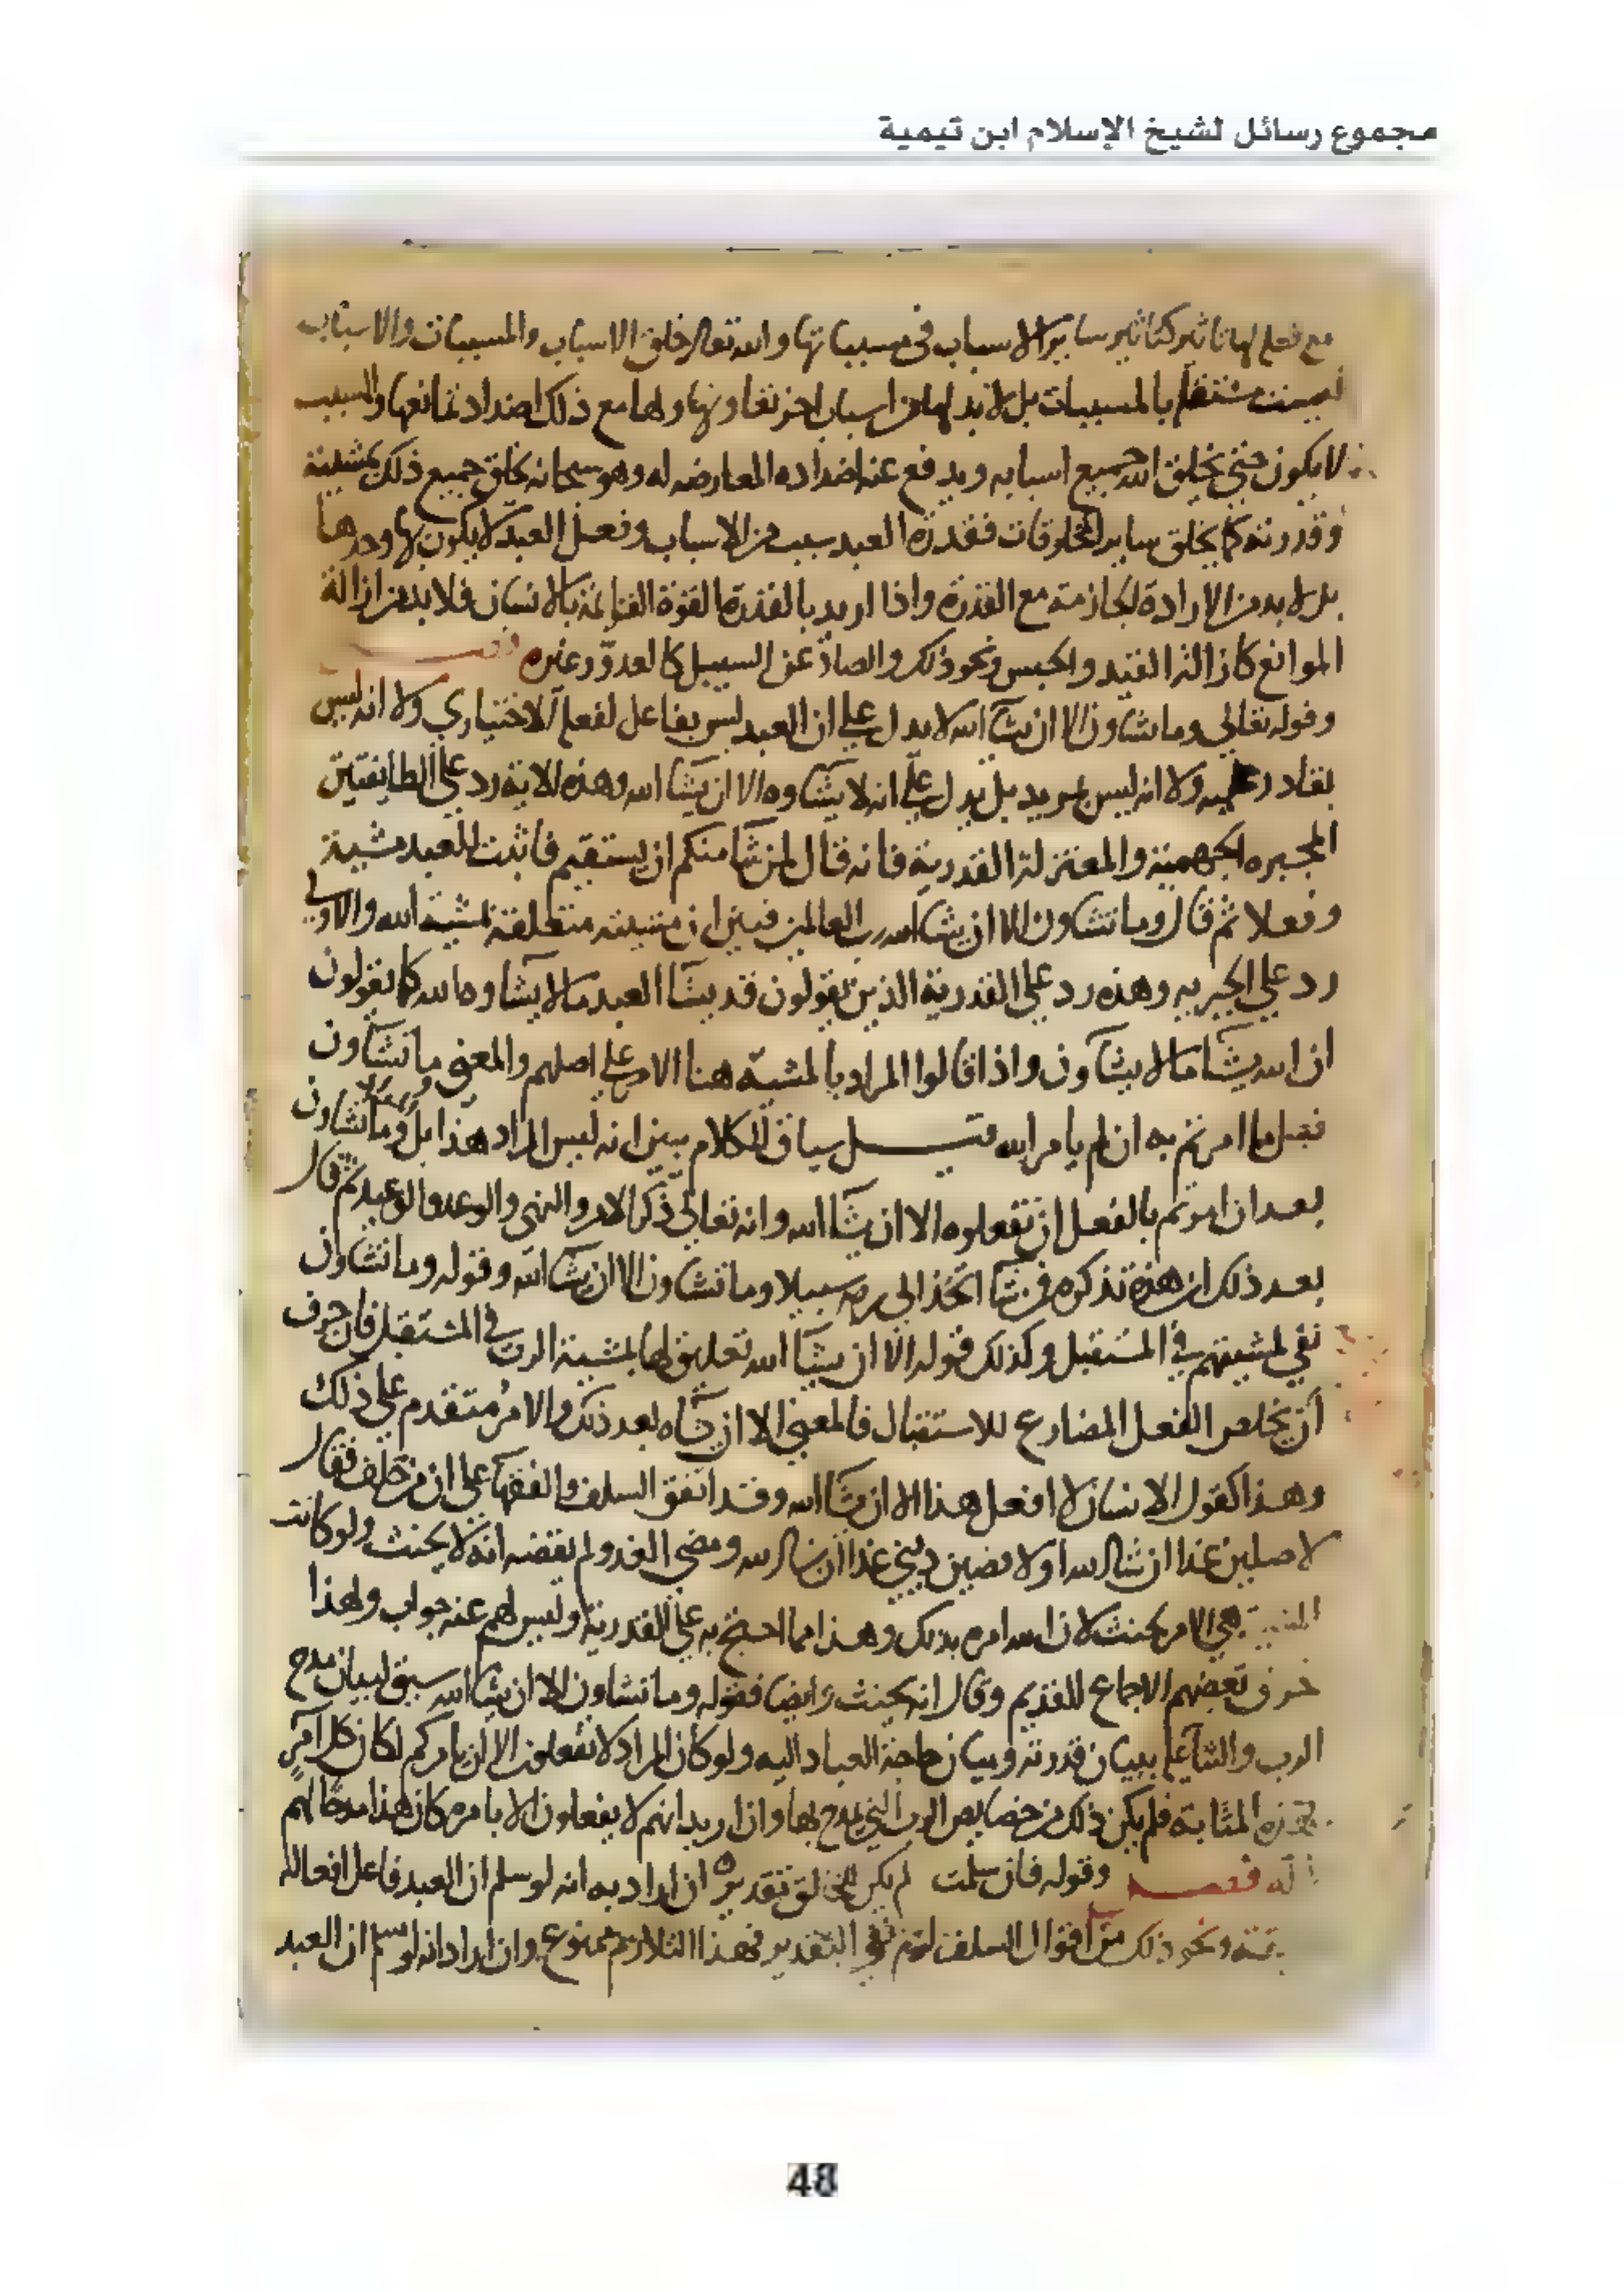 مجموع رسائل لشيخ الإسلام ابن تيمية
مع فعلها تاثير كتاثير ساير الاسباب في مسبباتها والله تعالى خلق الاسباب والمسببات والاسباب
ليست مستقله بالمسببات بل لابد لها من اسباب اخر تعاونها ولها مع ذلك اضداد تمانعها والمسبب
لا يكون حتى يخلق الله جميع اسبابه ويدفع عنه اضداده المعارضه له وهو سبحانه يخلق جميع ذلك بمشيئته
وقدرته كما يخلق ساير المخلوقات فقدرة العبد سبب من الاسباب وفعل العبد لا يكون بها وحدها
بل لا بد من الارادة الجازمة مع القدرة واذا اريد بالقدرة القوة القائمة بالانسان فلا بد من ازالة
الموانع كازالة القيد والحبس ونحو ذلك والصاد عن السبيل كالعدو وغيره
وقوله تعالى وما تشاون الا ان يشآ الله لا يدل على ان العبد ليس بفاعل لفعله الاختياري ولا انه ليس
بقادر عليه ولا انه ليس بمريد بل يدل على انه لا يشاوه الا ان يشآ الله وهذه الاية رد على الطايفتين
المجبره الجهمية والمعتزلة القدرية فانه قال لمن شآ منكم ان يستقيم فاثبت للعبد مشية
وفعلا ثم قال وما تشاون الا ان يشآ الله رب العالمين فبين ان مشيئته متعلقة بمشية الله والاولى
رد على الجبريه وهذه رد على القدرية الذين يقولون قد يشآ العبد مالا يشاوه الله كما يقولون
ان الله يشآ مالا يشآون واذا قالوا المراد بالمشية هنا الامر على اصلهم والمعنى وما تشآون
فعل ما امرتم به ان لم يامر الله قيل سياق الكلام يبين انه ليس المراد هذا بل وما تشاون
بعد ان امرتم بالفعل ان تفعلوه الا ان يشآ الله وانه تعالى ذكر الامر والنهي والوعد والوعيد ثم قال
بعد ذلك ان هذه تذكره فمن شآ اتخذ الى ربه سبيلا وما تشاون الا ان يشآ الله وقوله وما تشاون
نفي لمشيتهم في المستقبل وكذلك قوله الا ان يشآ الله تعليق لها بمشية الرب في المستقبل فان حرف
أن تخلص الفعل المضارع للاستقبال فالمعنى الا ان يشآه بعد ذلك والامر متقدم على ذلك
وهذا كقول الانسان لا افعل هذا الا ان يشآ الله وقد اتفق السلف والفقها على ان من حلف فقال
لاصلين غدا ان شا الله او لاقضين ديني غدا ان شا الله ومضى الغد ولم يقضه انه لا يحنث ولو كانت
المشية هي الامر لحنث لان الله امره بذلك وهذا مما احتج به على القدرية وليس لهم عنه جواب ولهذا
خرق بعضهم الاجماع القديم وقال انه يحنث وايضا فقوله وما تشاون الا ان يشآ الله سيق لبيان مدح
الرب والثنآ عليه ببيان قدرته وبيان حاجة العباد اليه ولو كان المراد لا تفعلون الا ان يامركم لكان كل آمرٍ
بهذه المثابة فلم يكن ذلك من خصايص الرب التي يمدح بها وان اريد انهم لا يفعلون الا بامره كان هذا مدحًا لهم
لا له فصــل وقوله فان سلمت لم يكن للخالق تقديره ان اراد به انه لو سلم ان العبد فاعل افعاله
ونحو ذلك من اقوال السلف لزم نفي التقدير فهذا التلازم ممنوع وان اراد انه لو سلم ان العبد
48